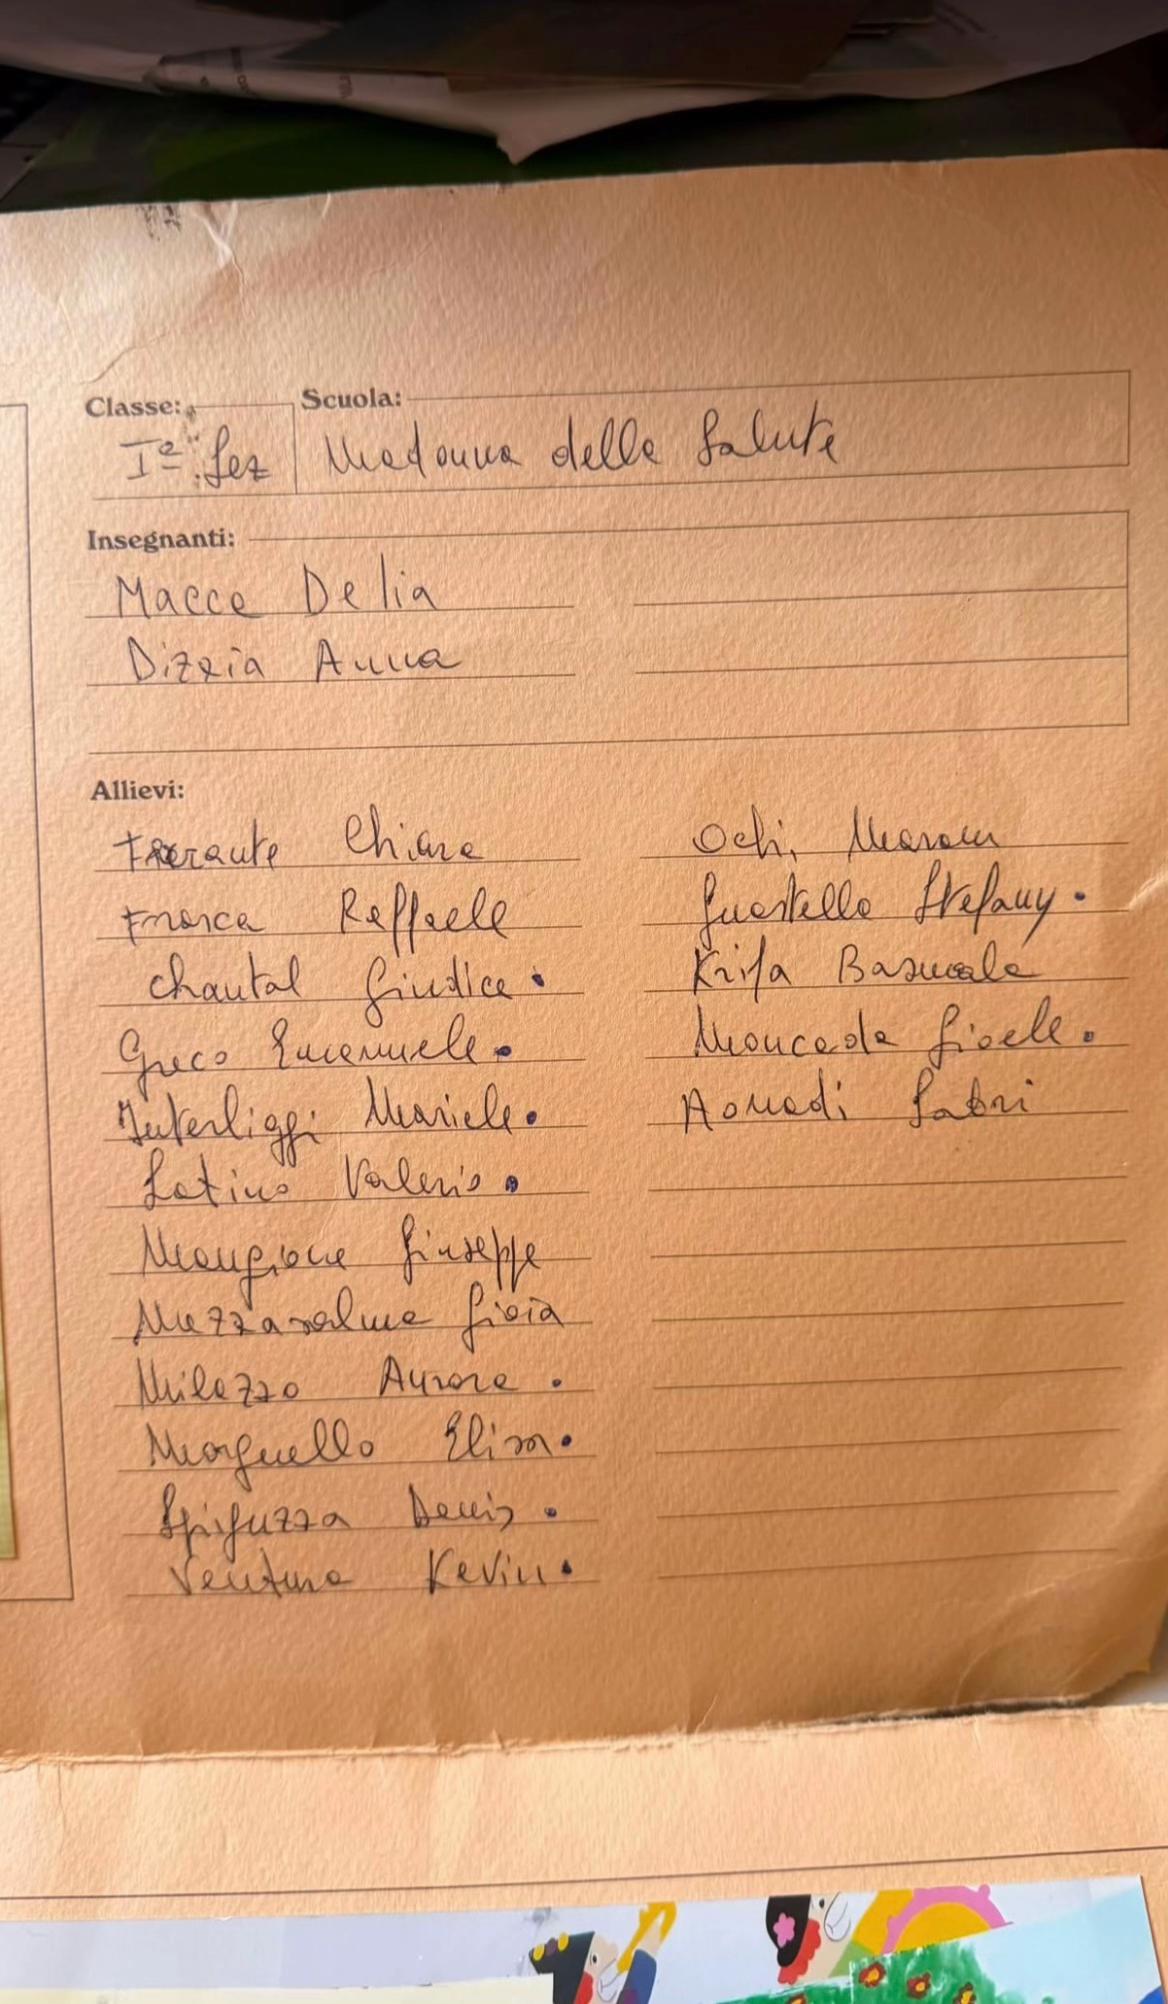 Classe: Scuola:
Iª Sez Madonna della Salute
Insegnanti:
Macca Delia
Dizzia Anna
Allievi:
Ferrante Chiara
Frasca Raffaele
Chantal Giudice .
Greco Emanuele .
Interliggi Mariele .
Latino Valerio .
Mangione Giuseppe
Mezzasalma Gioia
Milazzo Aurora .
Morguello Elisa .
Spifuzza Denis .
Ventura Kevin .
Ochi, Maram
Guastella Stefany .
Krifa
Moncada Gioele .
Aouadi Sabri